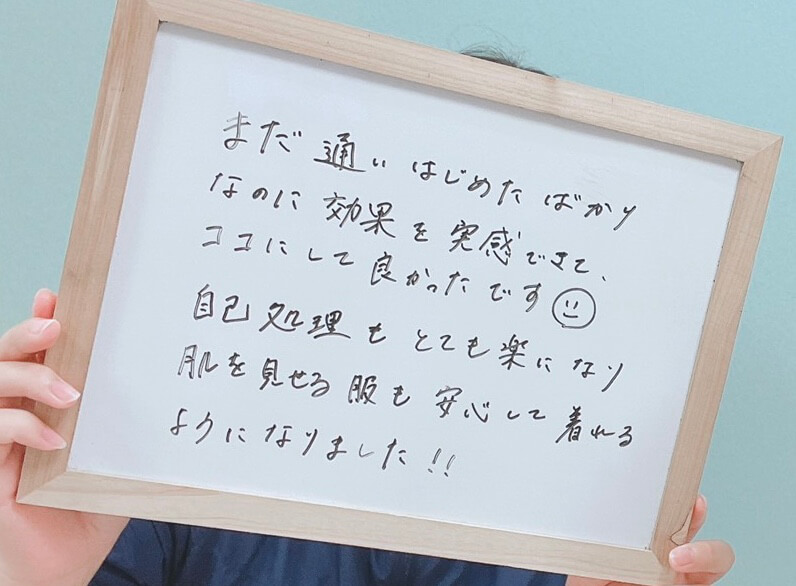 まだ通いはじめたばかり
なのに効果を実感できて、
ココにして良かったです
自己処理もとても楽になり
肌を見せる服も安心して着れる
ようになりました!!